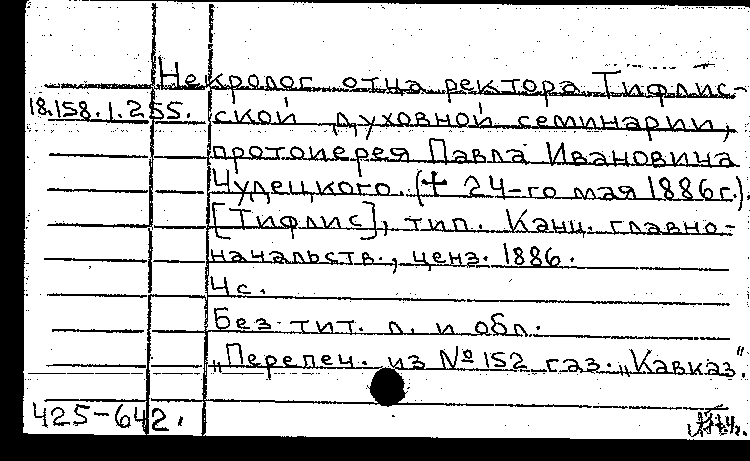 Некролог отца ректора Тифлис-
18.158.1.255. ской духовной семинарии,
протоиерея Павла Ивановича
Чудецкого. († 24-го мая 1886г.).
[Тифлис], тип. Канц. главно-
начальств., ценз. 1886.
4с.
Без тит. л. и обл.
„Перепеч. из № 152 газ. „Кавказ".
425-642.